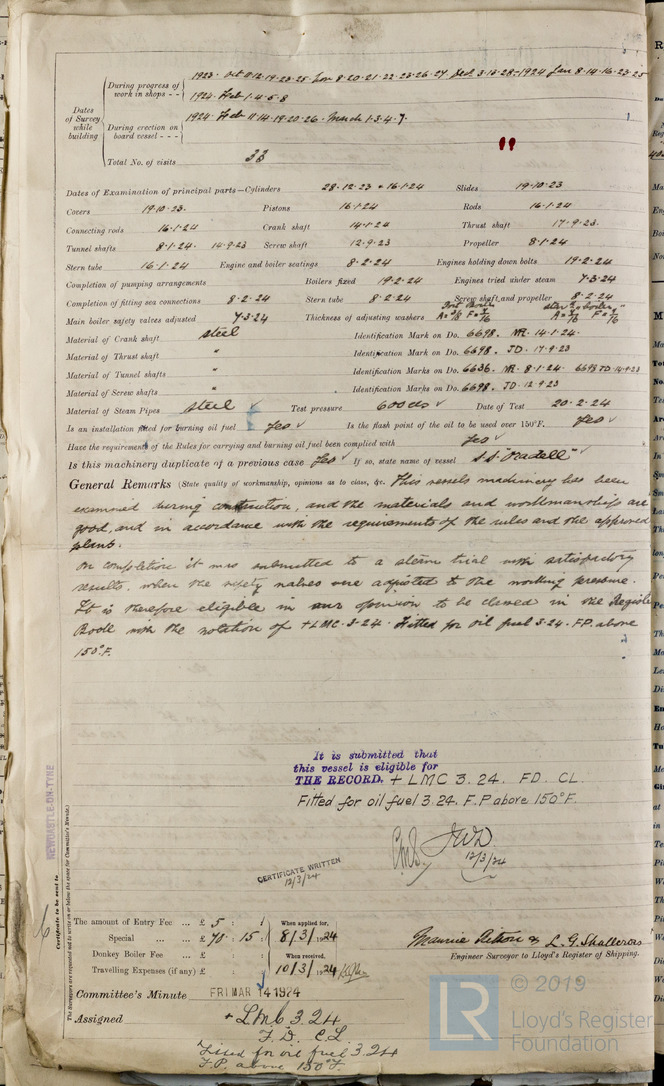 Dates of Survey while building
During progress of work in shops - - 1923. Oct 11. 12. 19. 23. 25. Nov 8. 20. 21. 22. 23. 26. 27. Dec 3. 13. 28 - 1924 Jan 8. 14. 16. 23. 25
1924. Feb 1. 4. 5. 8
During erection on board vessel - - - 1924. Feb 11. 14. 19. 20. 26. March 1. 3. 4. 7.
Total No. of visits 33
Dates of Examination of principal parts—Cylinders 28.12.23 + 16.1.24 Slides 19.10.23
Covers 19.10.23. Pistons 16.1.24 Rods 16.1.24
Connecting rods 16.1.24 Crank shaft 14.1.24 Thrust shaft 17.9.23.
Tunnel shafts 8.1.24. 14.9.23 Screw shaft 12.9.23 Propeller 8.1.24
Stern tube 16.1.24 Engine and boiler seatings 8.2.24 Engines holding down bolts 19.2.24
Completion of pumping arrangements Boilers fixed 19.2.24 Engines tried under steam 7.3.24
Completion of fitting sea connections 8.2.24 Stern tube 8.2.24 Screw shaft and propeller 8.2.24
Main boiler safety valves adjusted 7.3.24 Thickness of adjusting washers Port Boiler
Material of Crank shaft steel Identification Mark on Do. 6698. 14.1.24.
Material of Thrust shaft " Identification Mark on Do. 6698. JD. 17.9.23
Material of Tunnel shafts " Identification Marks on Do. 6636. 8.1.24. 6698 JD. 14.9.23
Material of Screw shafts " Identification Marks on Do. 6698. JD. 12.9.23
Material of Steam Pipes steel ✓ Test pressure 600 lbs ✓ Date of Test 20.2.24
Is an installation fitted for burning oil fuel Yes ✓ Is the flash point of the oil to be used over 150°F. Yes ✓
Have the requirements of the Rules for carrying and burning oil fuel been complied with Yes ✓
Is this machinery duplicate of a previous case Yes ✓ If so, state name of vessel S.S. "Oradell"
General Remarks (State quality of workmanship, opinions as to class, &c. This vessels machinery has been
examined during construction, and the materials and workmanship are
good, and in accordance with the requirements of the rules and the approved
plans.
On completion it was submitted to a steam trial with satisfactory
results, when the safety valves were adjusted to the working pressure.
It is therefore eligible in our opinion to be classed in the Register
Book with the notation of +LMC.3.24. Fitted for oil fuel 3.24. F.P. above
150°F.
It is submitted that
this vessel is eligible for
THE RECORD. + LMC 3. 24. FD. CL.
Fitted for oil fuel 3.24. F.P. above 150°F.
JWD
12/3/24
CERTIFICATE WRITTEN
12/3/24
NEWCASTLE-ON-TYNE
Certificate to be sent to
The Surveyors are requested not to write on or below the space for Committee's Minute.
The amount of Entry Fee ... £ 5 : : When applied for,
Special ... £ 70 : 15 : 8/3/1924
Donkey Boiler Fee ... £ : : When received,
Travelling Expenses (if any) £ : : 10/3/1924
L. G. Shallcross
Engineer Surveyor to Lloyd's Register of Shipping.
Committee's Minute FRI MAR 14 1924
Assigned + LMC 3.24
F.D. C.L.
Fitted for oil fuel 3.24
F.P. above 150°F.
LR © 2019
Lloyd's Register
Foundation